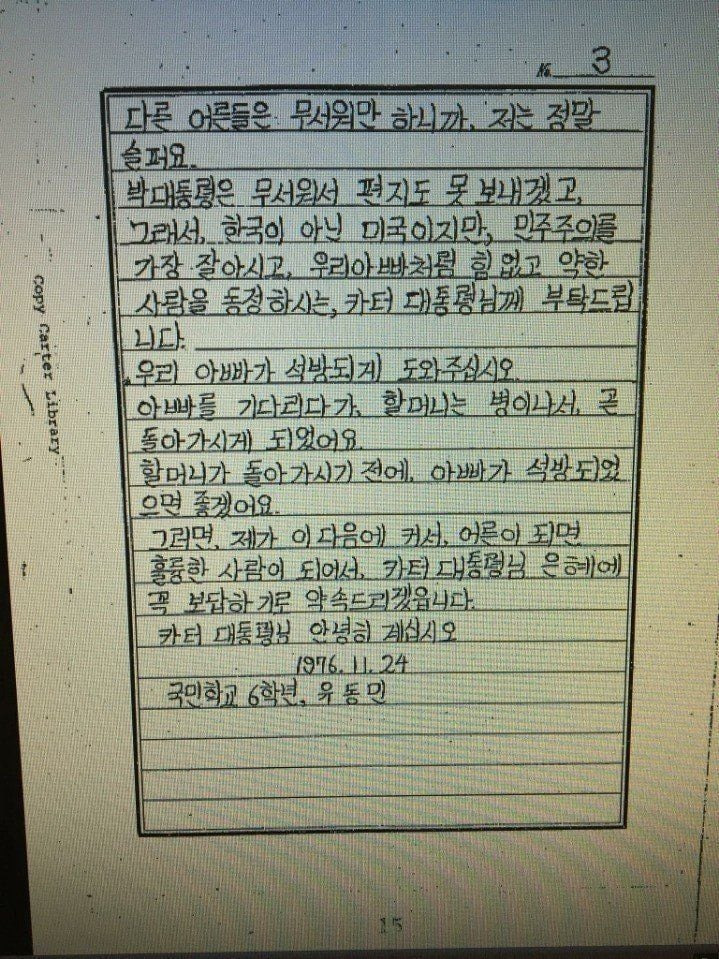 No. 3
다른 어른들은 무서워만 하니까, 저는 정말
슬퍼요.
박대통령은 무서워서 편지도 못 보내겠고,
그래서, 한국이 아닌 미국이지만, 민주주의를
가장 잘아시고, 우리아빠처럼 힘없고 약한
사람을 동정하시는, 카터 대통령님께 부탁드립
니다.
우리 아빠가 석방되게 도와주십시오
아빠를 기다리다가, 할머니는 병이나서, 곧
돌아가시게 되었어요.
할머니가 돌아가시기 전에, 아빠가 석방되었
으면 좋겠어요.
그러면, 제가 이 다음에 커서, 어른이 되면
훌륭한 사람이 되어서, 카터 대통령님 은혜에
꼭 보답하기로 약속드리겠읍니다.
카터 대통령님 안녕히 계십시오
1976. 11. 24
국민학교 6학년, 유동민
Copy Carter Library
15